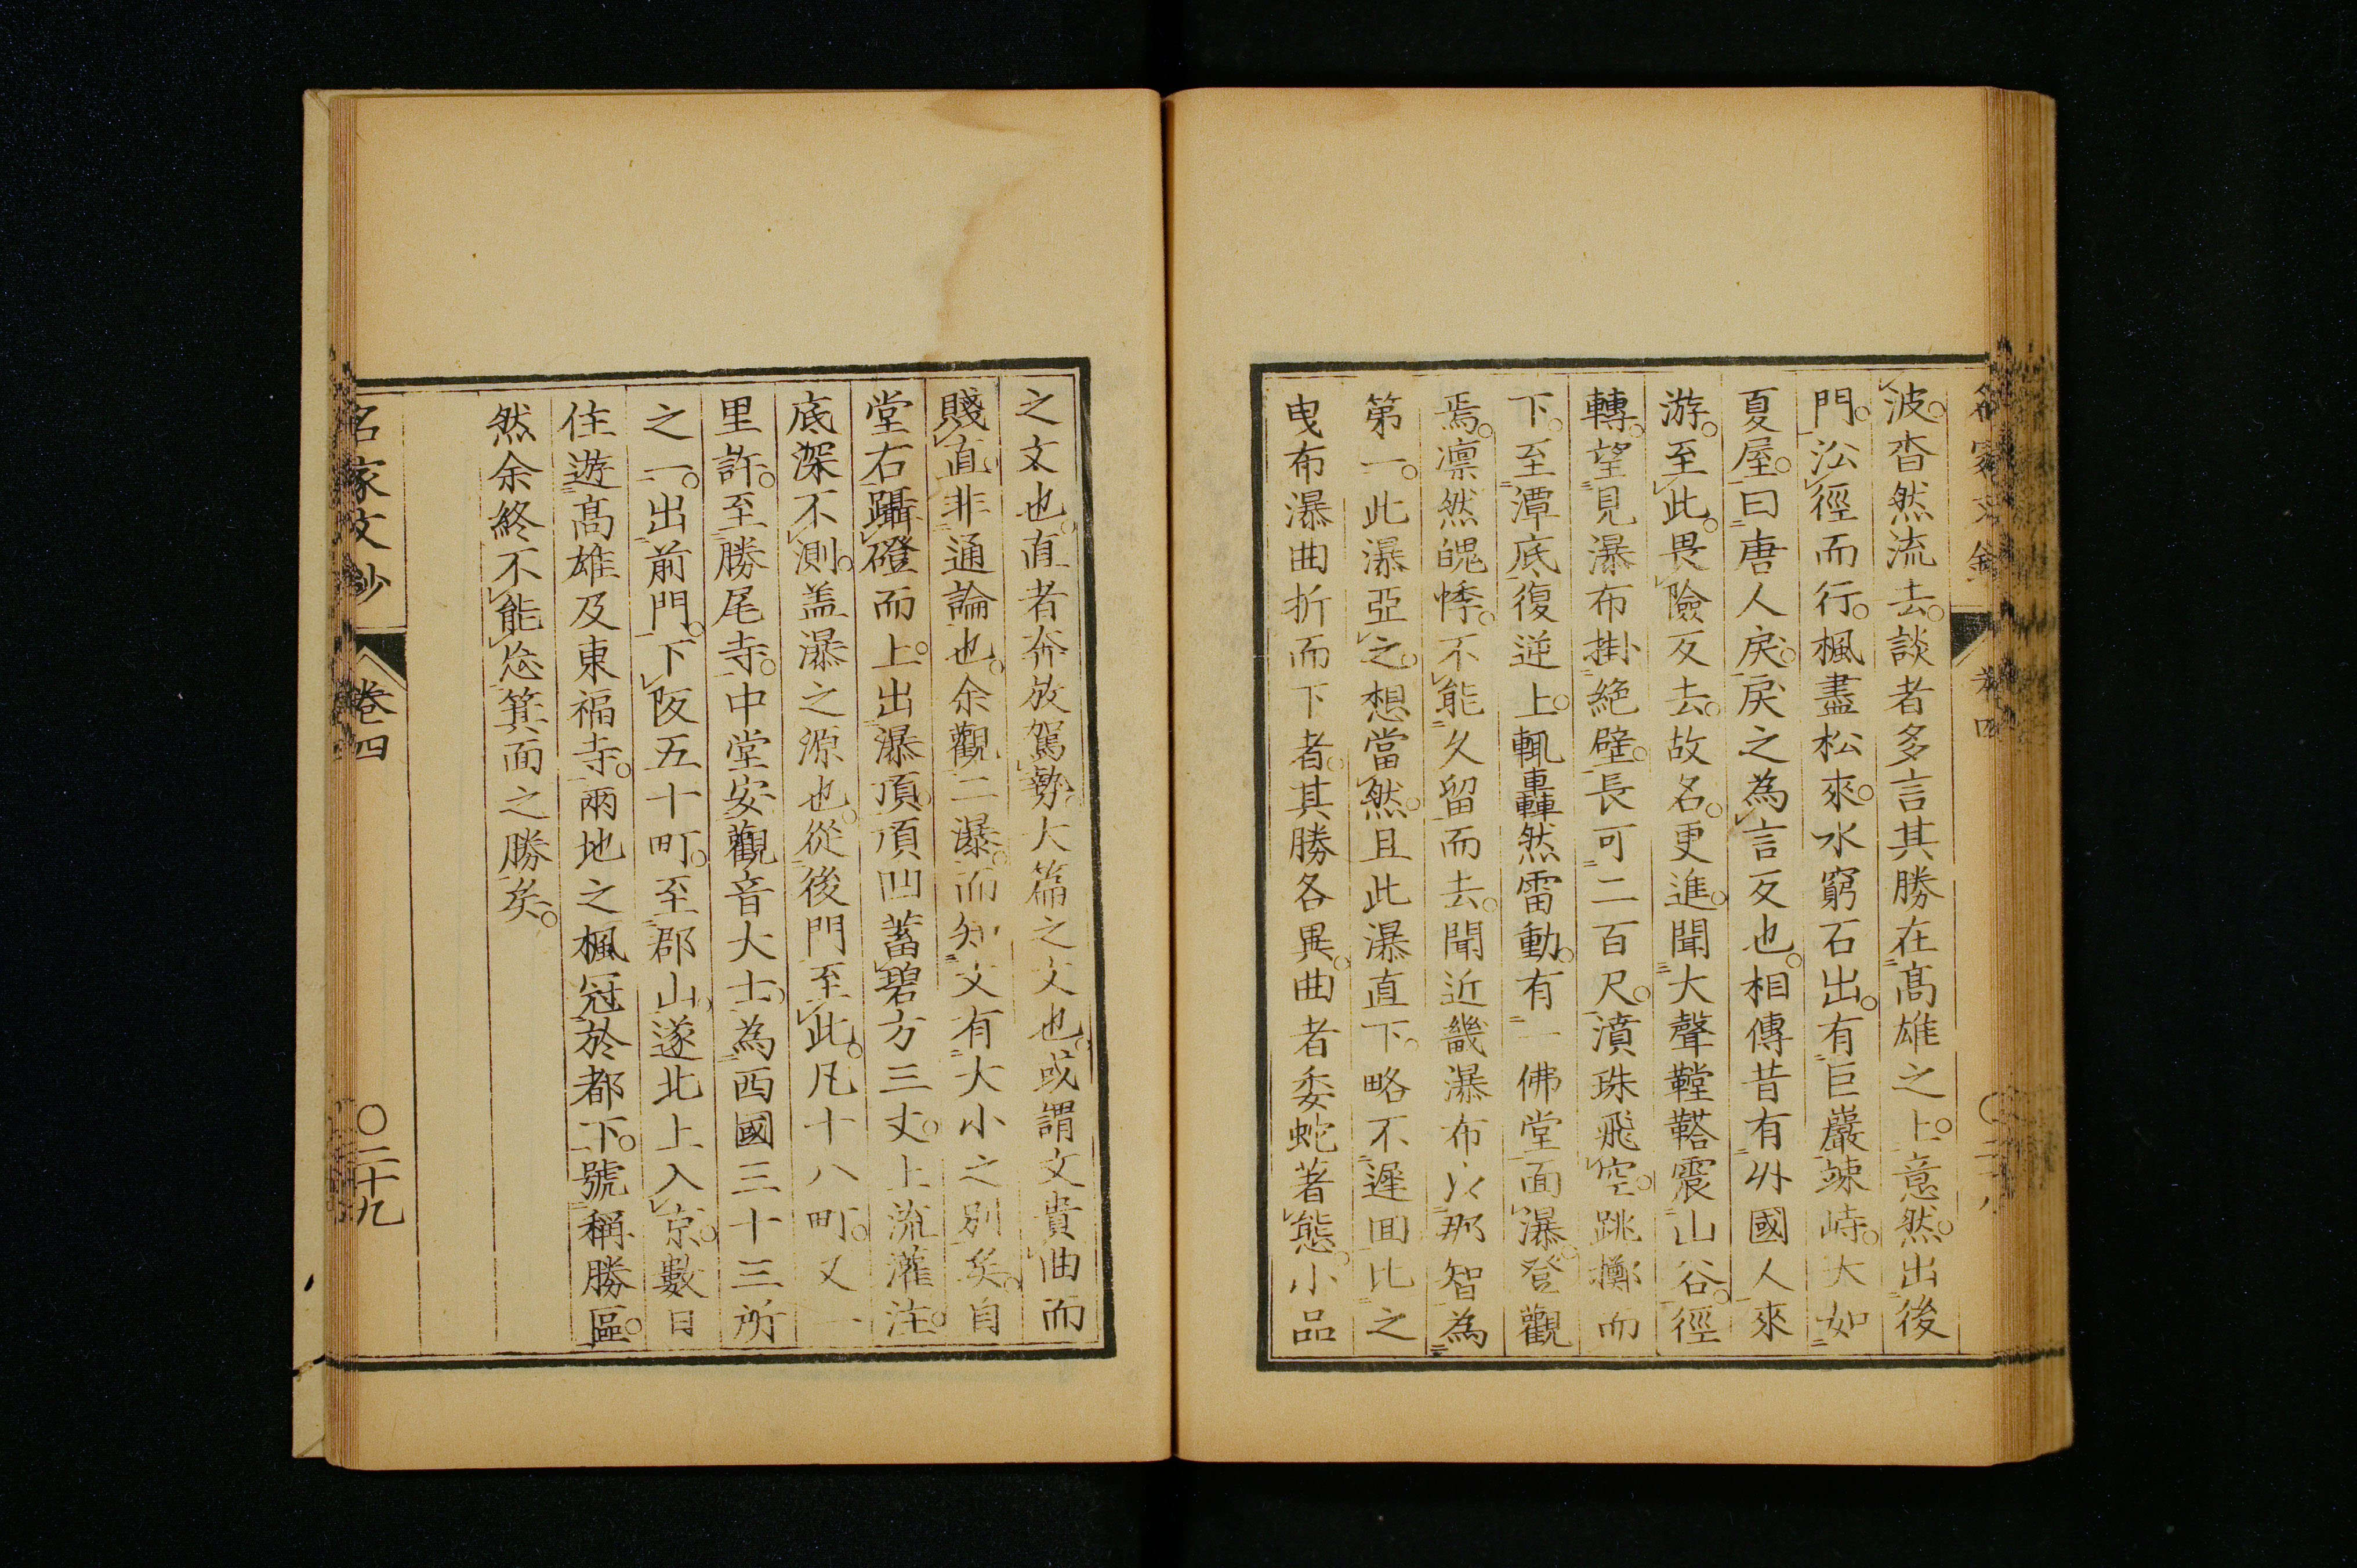 名家文鈔 卷四 〇二十八
波。杳然流去。談者多言其勝在髙雄之上。意然。出後
門。㳂徑而行。楓盡松來。水窮石出。有巨巖竦峙。大如
夏屋。曰唐人戾。戾之為言反也。相傳昔有外國人來
游。至此。畏險反去。故名。更進。聞大聲鞺鞳震山谷。徑
轉。望見瀑布掛絶壁。長可二百尺。濆珠飛空。跳擲而
下。至潭底復逆上。輒轟然雷動。有一佛堂面瀑。登觀
焉。凛然魄悸。不能久留而去。聞近畿瀑布以那智為
第一。此瀑亞之。想當然。且此瀑直下。略不遲回比之
曳布瀑曲折而下者。其勝各異。曲者委蛇著態。小品
之文也。直者奔放駕勢。大篇之文也。或謂文貴曲而
賤直非通論也。余觀二瀑。而知文有大小之別矣。自
堂右躡磴而上。出瀑頂。頂凹蓄碧方三丈。上流灌注。
底深不測。盖瀑之源也。從後門至此。凡十八町。又一
里許。至勝尾寺。中堂安觀音大士。為西國三十三所
之一。出前門。下阪五十町。至郡山。遂北上入京。數日
徃遊髙雄及東福寺。兩地之楓冠於都下。號稱勝區。
然余終不能忘箕面之勝矣。
名家文鈔 卷四 〇二十九